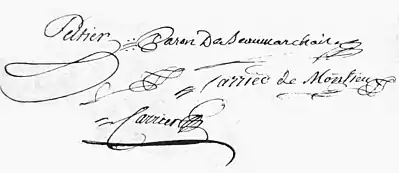 Peltier Caron De Beaumarchais
Carrier de Montieu
Carrier